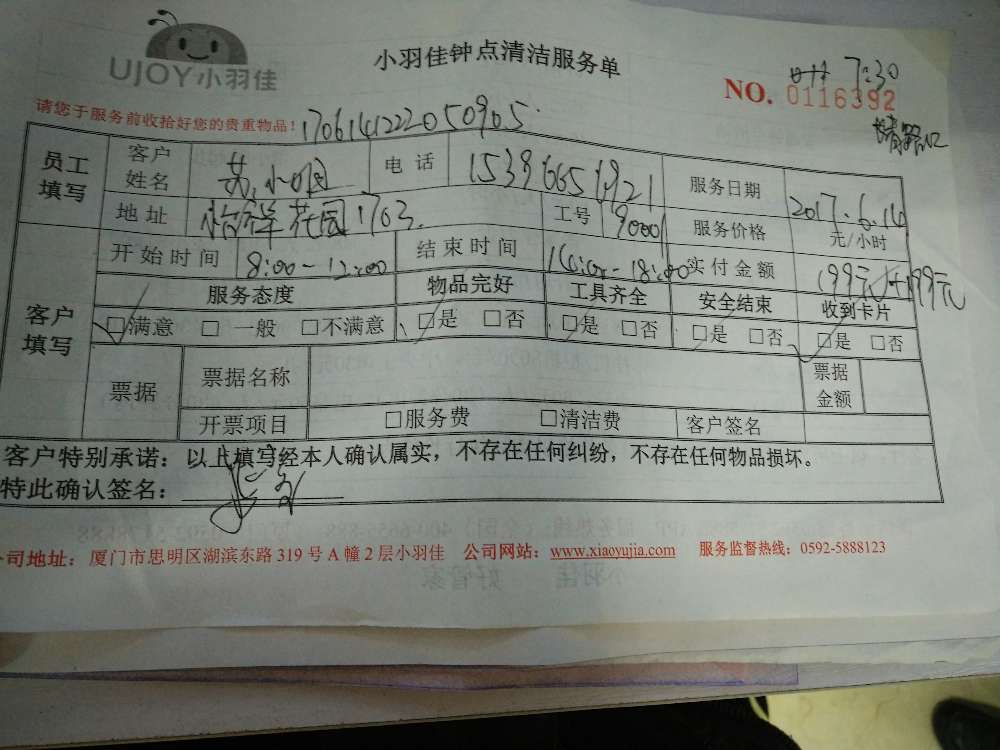 UJOY小羽佳
小羽佳钟点清洁服务单
7:30
NO. 0116392
请您于服务前收拾好您的贵重物品! 1706141222050905.
员工填写 客户姓名 小园 电话 15396651921 服务日期 2017.6.14
地址 怡祥花园1703. 工号 90001 服务价格 元/小时
开始时间 8:00-12:00 结束时间 14:00-18:00 实付金额 199元+199元
客户填写 服务态度 物品完好 工具齐全 安全结束 收到卡片
□满意 □一般 □不满意 □是 □否 □是 □否 □是 □否 □是 □否
票据 票据名称 票据金额
开票项目 □服务费 □清洁费 客户签名
客户特别承诺：以上填写经本人确认属实，不存在任何纠纷，不存在任何物品损坏。
特此确认签名：
司地址：厦门市思明区湖滨东路319号A幢2层小羽佳 公司网站：www.xiaoyujia.com 服务监督热线：0592-5888123